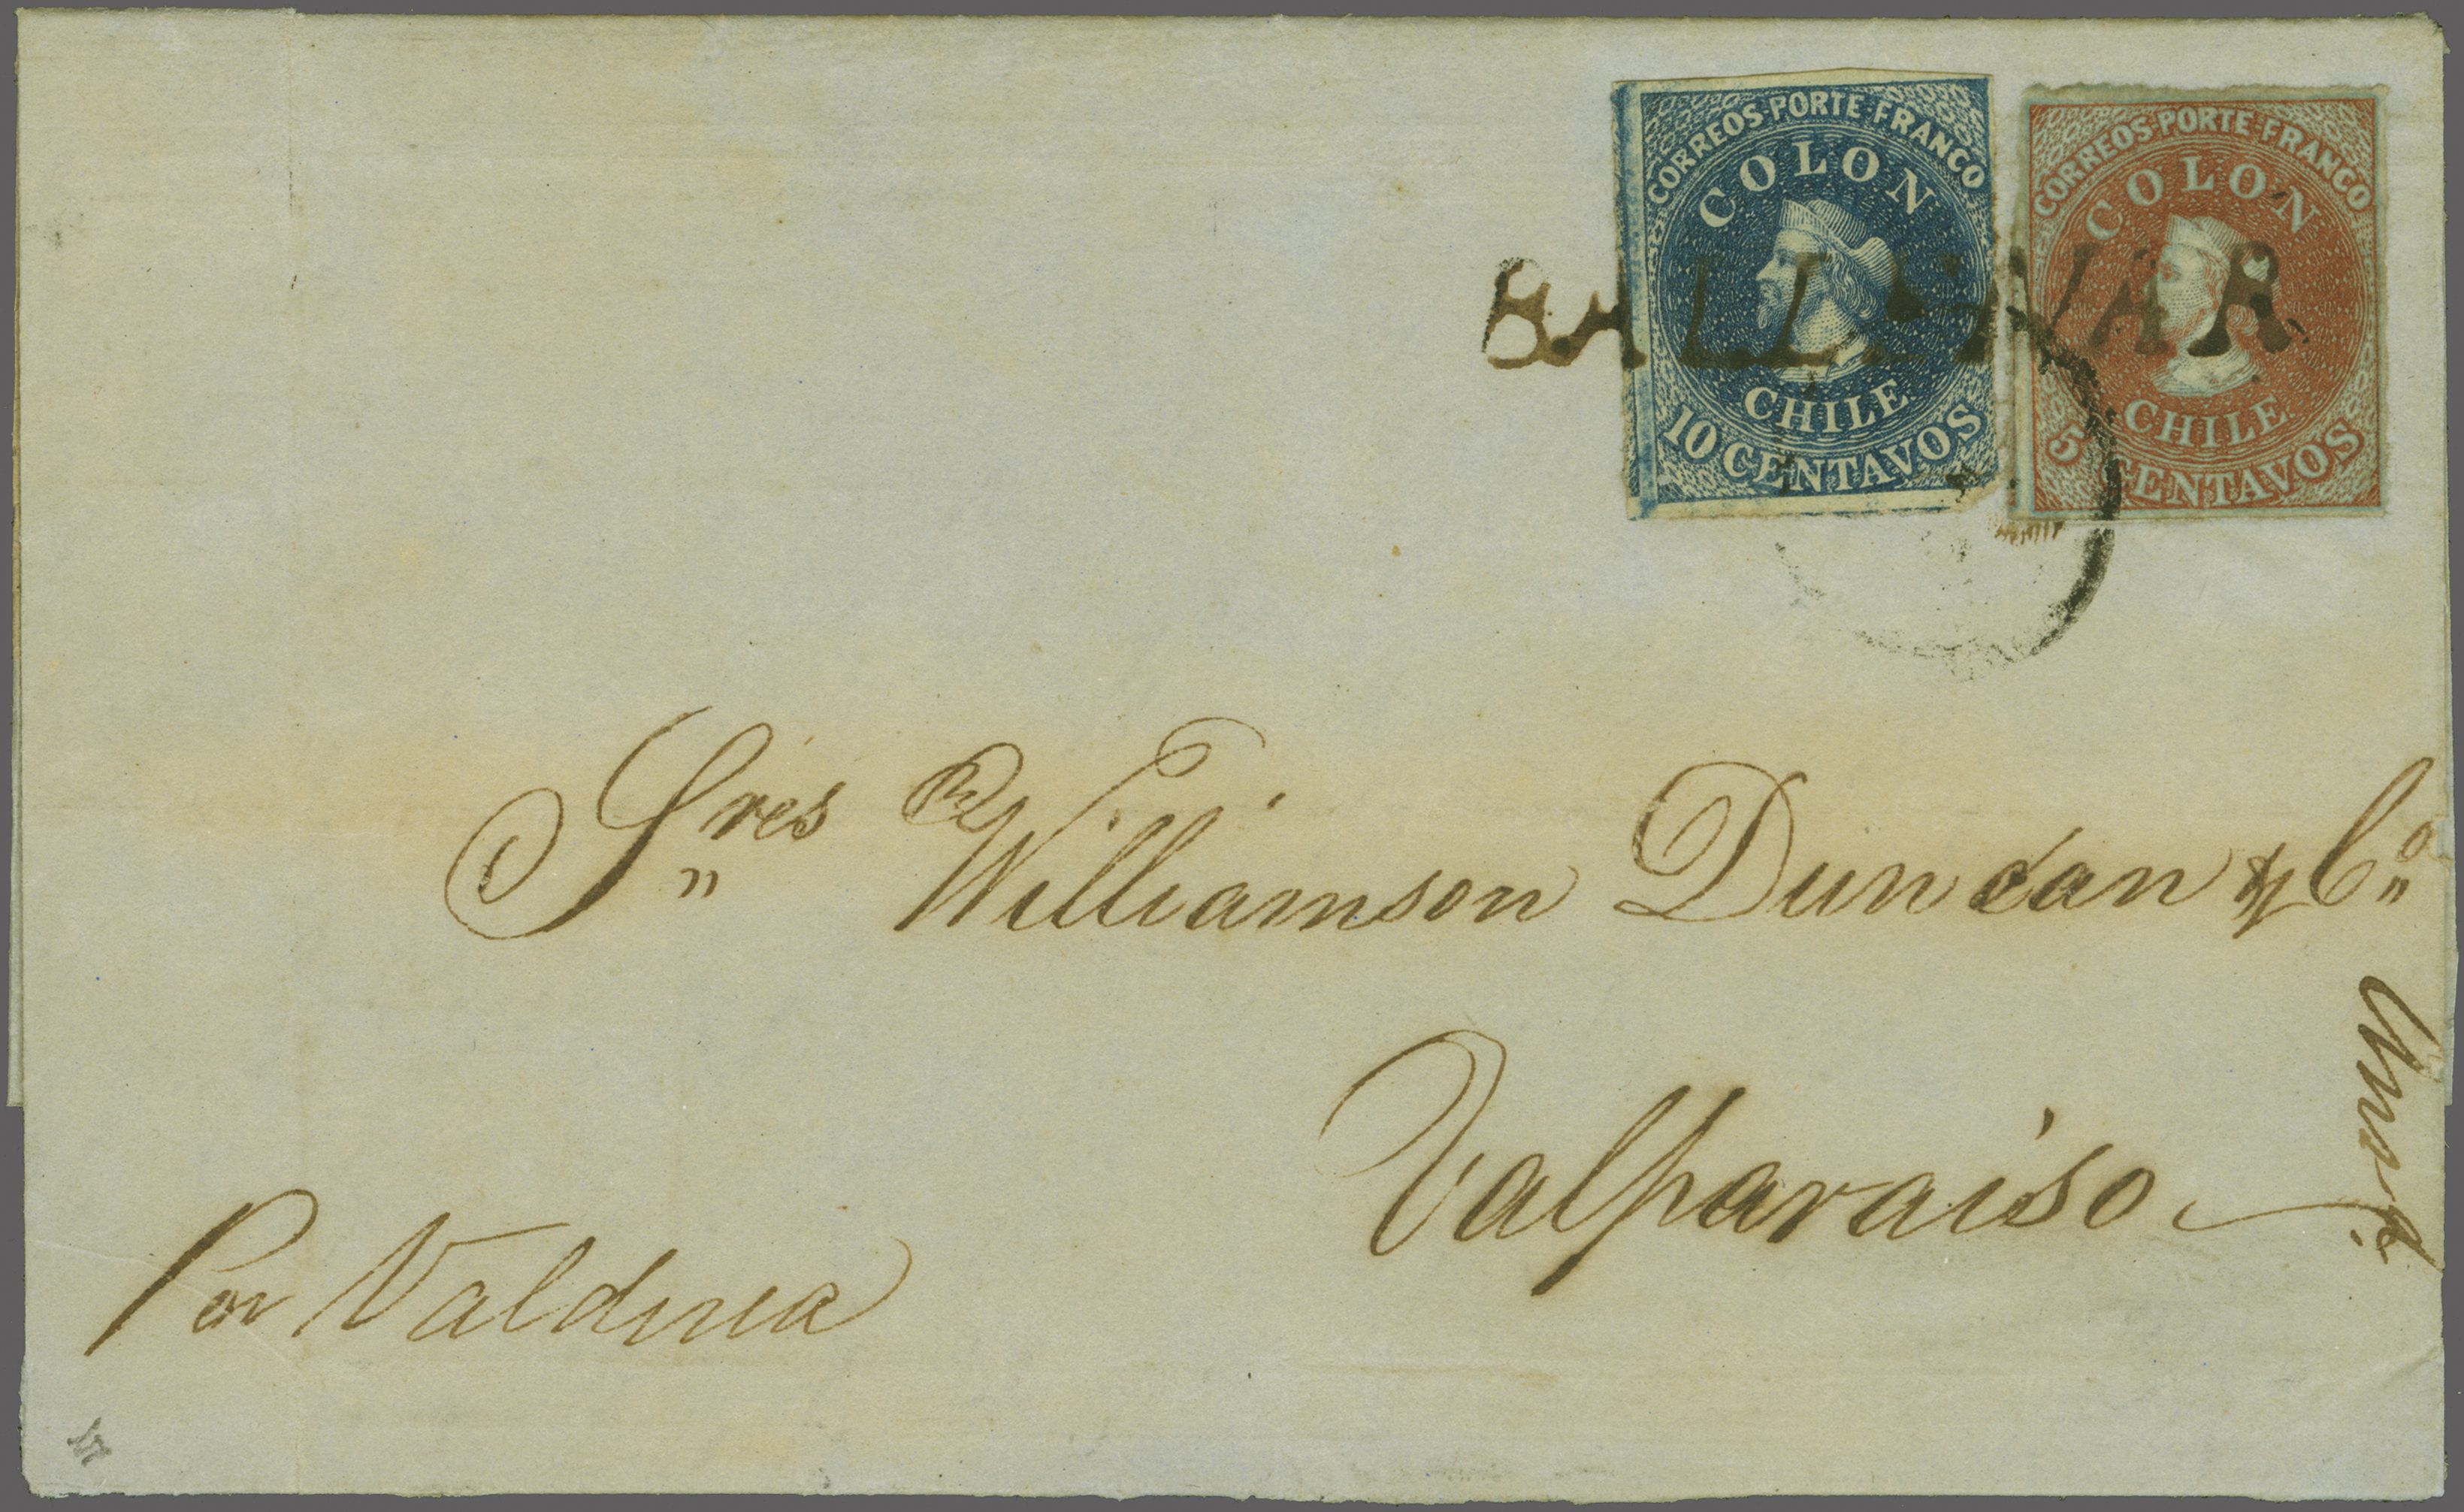 CORREOS PORTE FRANCO
COLON
CHILE
10 CENTAVOS
CORREOS PORTE FRANCO
COLON
CHILE
5 CENTAVOS
BALLENAR
Sres Williamson Duncan y Ca
Valparaiso
Por Valdivia